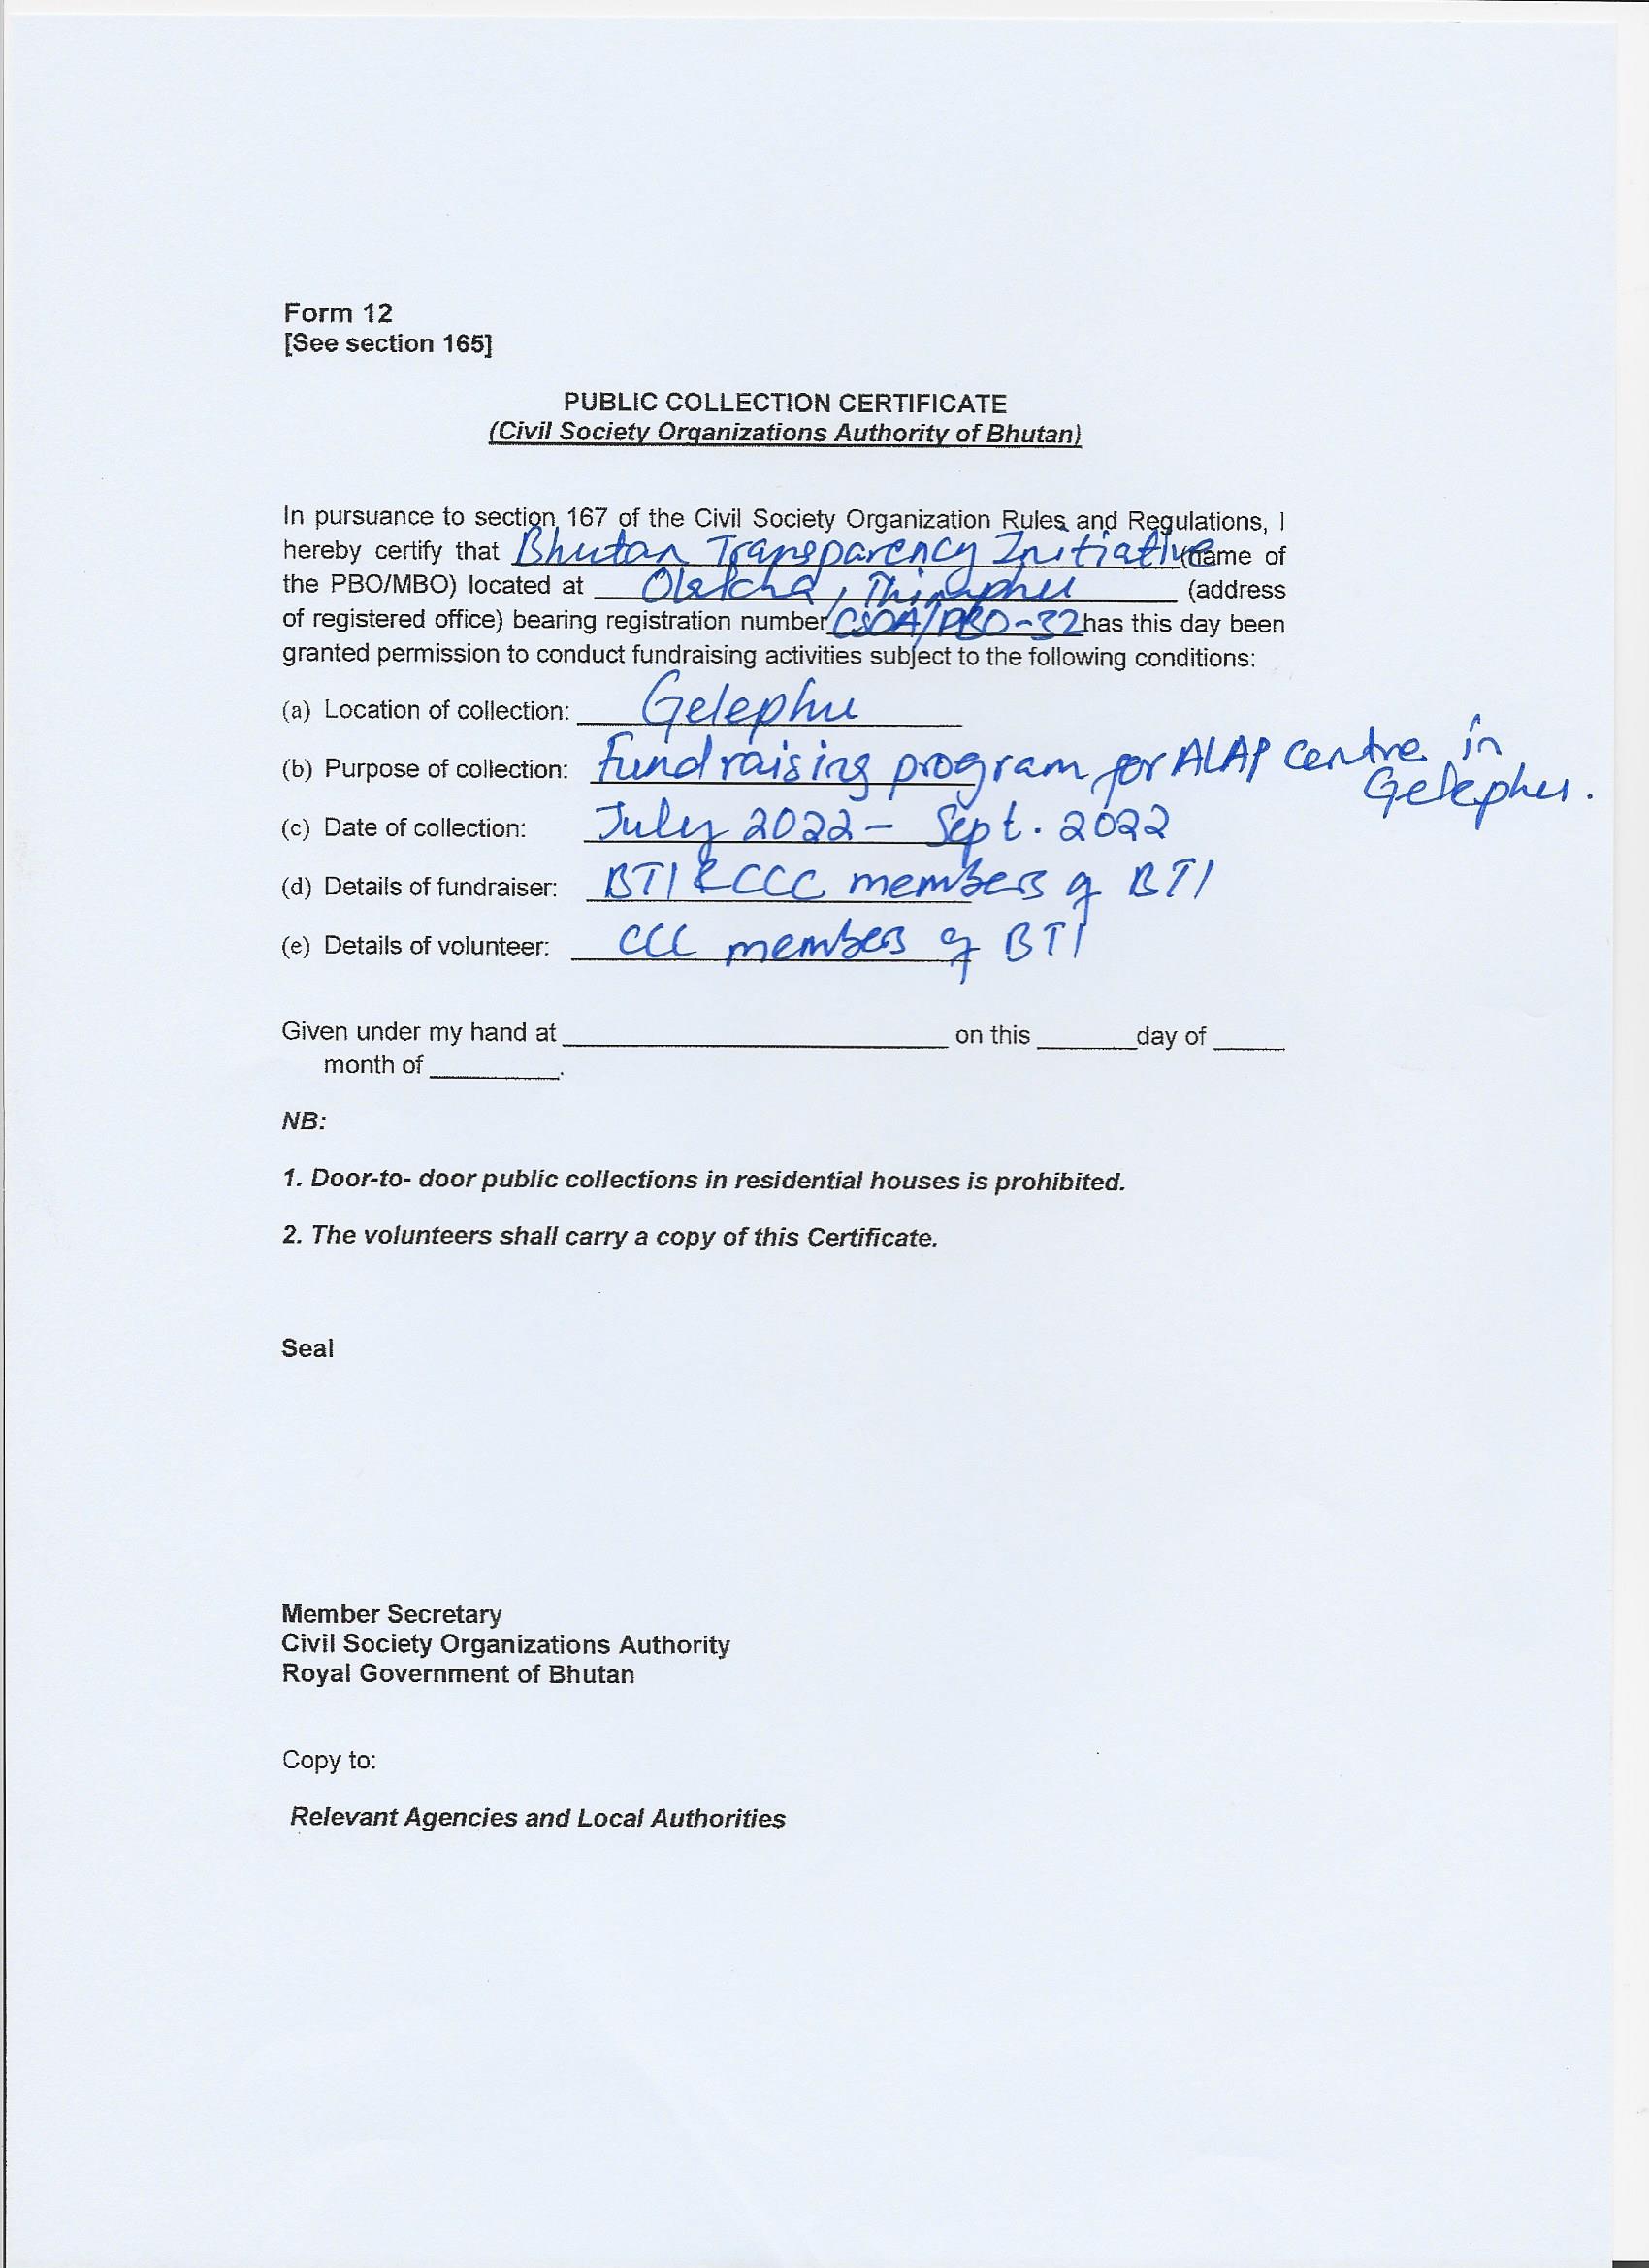 Form 12
[See section 165]
PUBLIC COLLECTION CERTIFICATE
(Civil Society Organizations Authority of Bhutan)
In pursuance to section 167 of the Civil Society Organization Rules and Regulations, I
hereby certify that Bhutan Transparency Initiative (name of
the PBO/MBO) located at Olakha, Thimphu (address
of registered office) bearing registration number CSOA/PBO-32 has this day been
granted permission to conduct fundraising activities subject to the following conditions:
(a) Location of collection: Gelephu
(b) Purpose of collection: Fundraising program for ALAP Centre in
Gelephu.
(c) Date of collection: July 2022 - Sept. 2022
(d) Details of fundraiser: BTI & CCC members of BTI
(e) Details of volunteer: CCC members of BTI
Given under my hand at ____________ on this ______ day of _____
month of ________.
NB:
1. Door-to- door public collections in residential houses is prohibited.
2. The volunteers shall carry a copy of this Certificate.
Seal
Member Secretary
Civil Society Organizations Authority
Royal Government of Bhutan
Copy to:
Relevant Agencies and Local Authorities